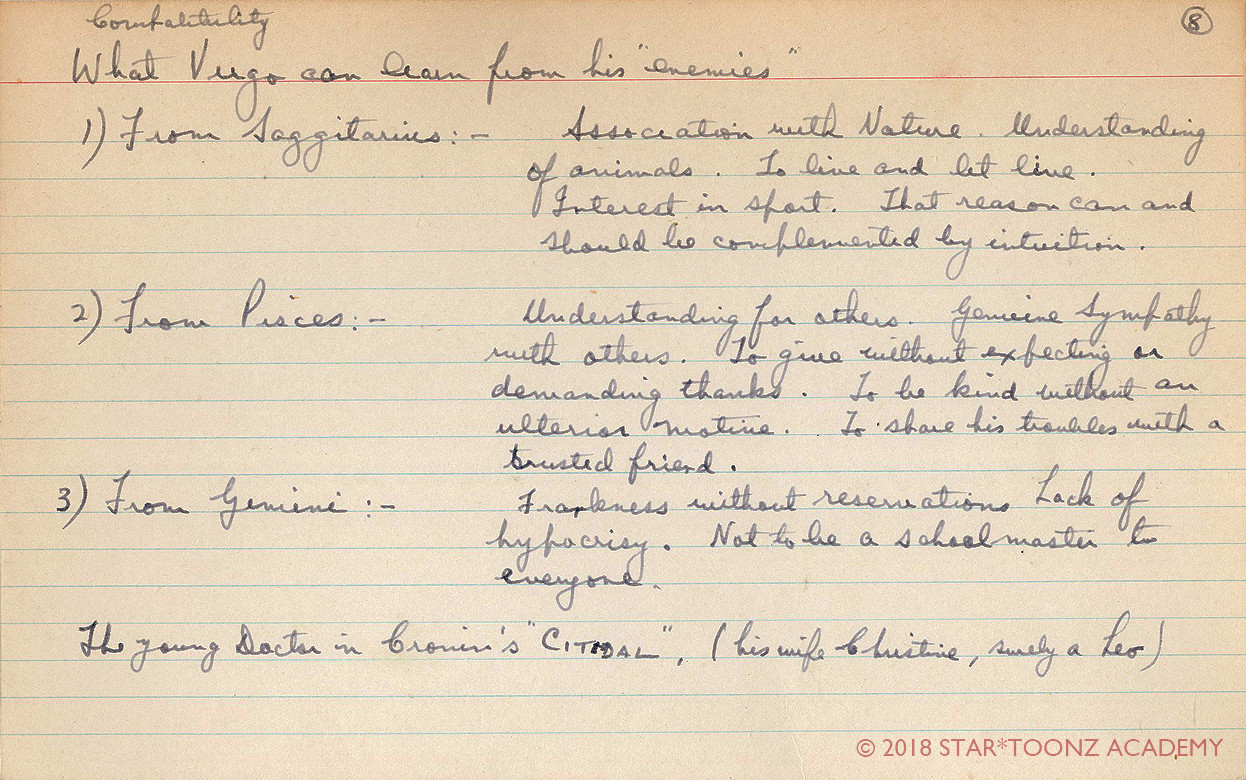 Compatibility
8
What Virgo can learn from his "enemies"
1) From Saggitarius:- Association with Nature. Understanding
of animals. To live and let live.
Interest in sport. That reason can and
should be complemented by intuition.
2) From Pisces:- Understanding for others. Genuine Sympathy
with others. To give without expecting or
demanding thanks. To be kind without an
ulterior motive. To share his troubles with a
trusted friend.
3) From Gemini:- Frankness without reservations Lack of
hypocrisy. Not to be a schoolmaster to
everyone.
The young Doctor in Cronin's "CITADAL", (his wife Christine, surely a Leo)
© 2018 STAR*TOONZ ACADEMY